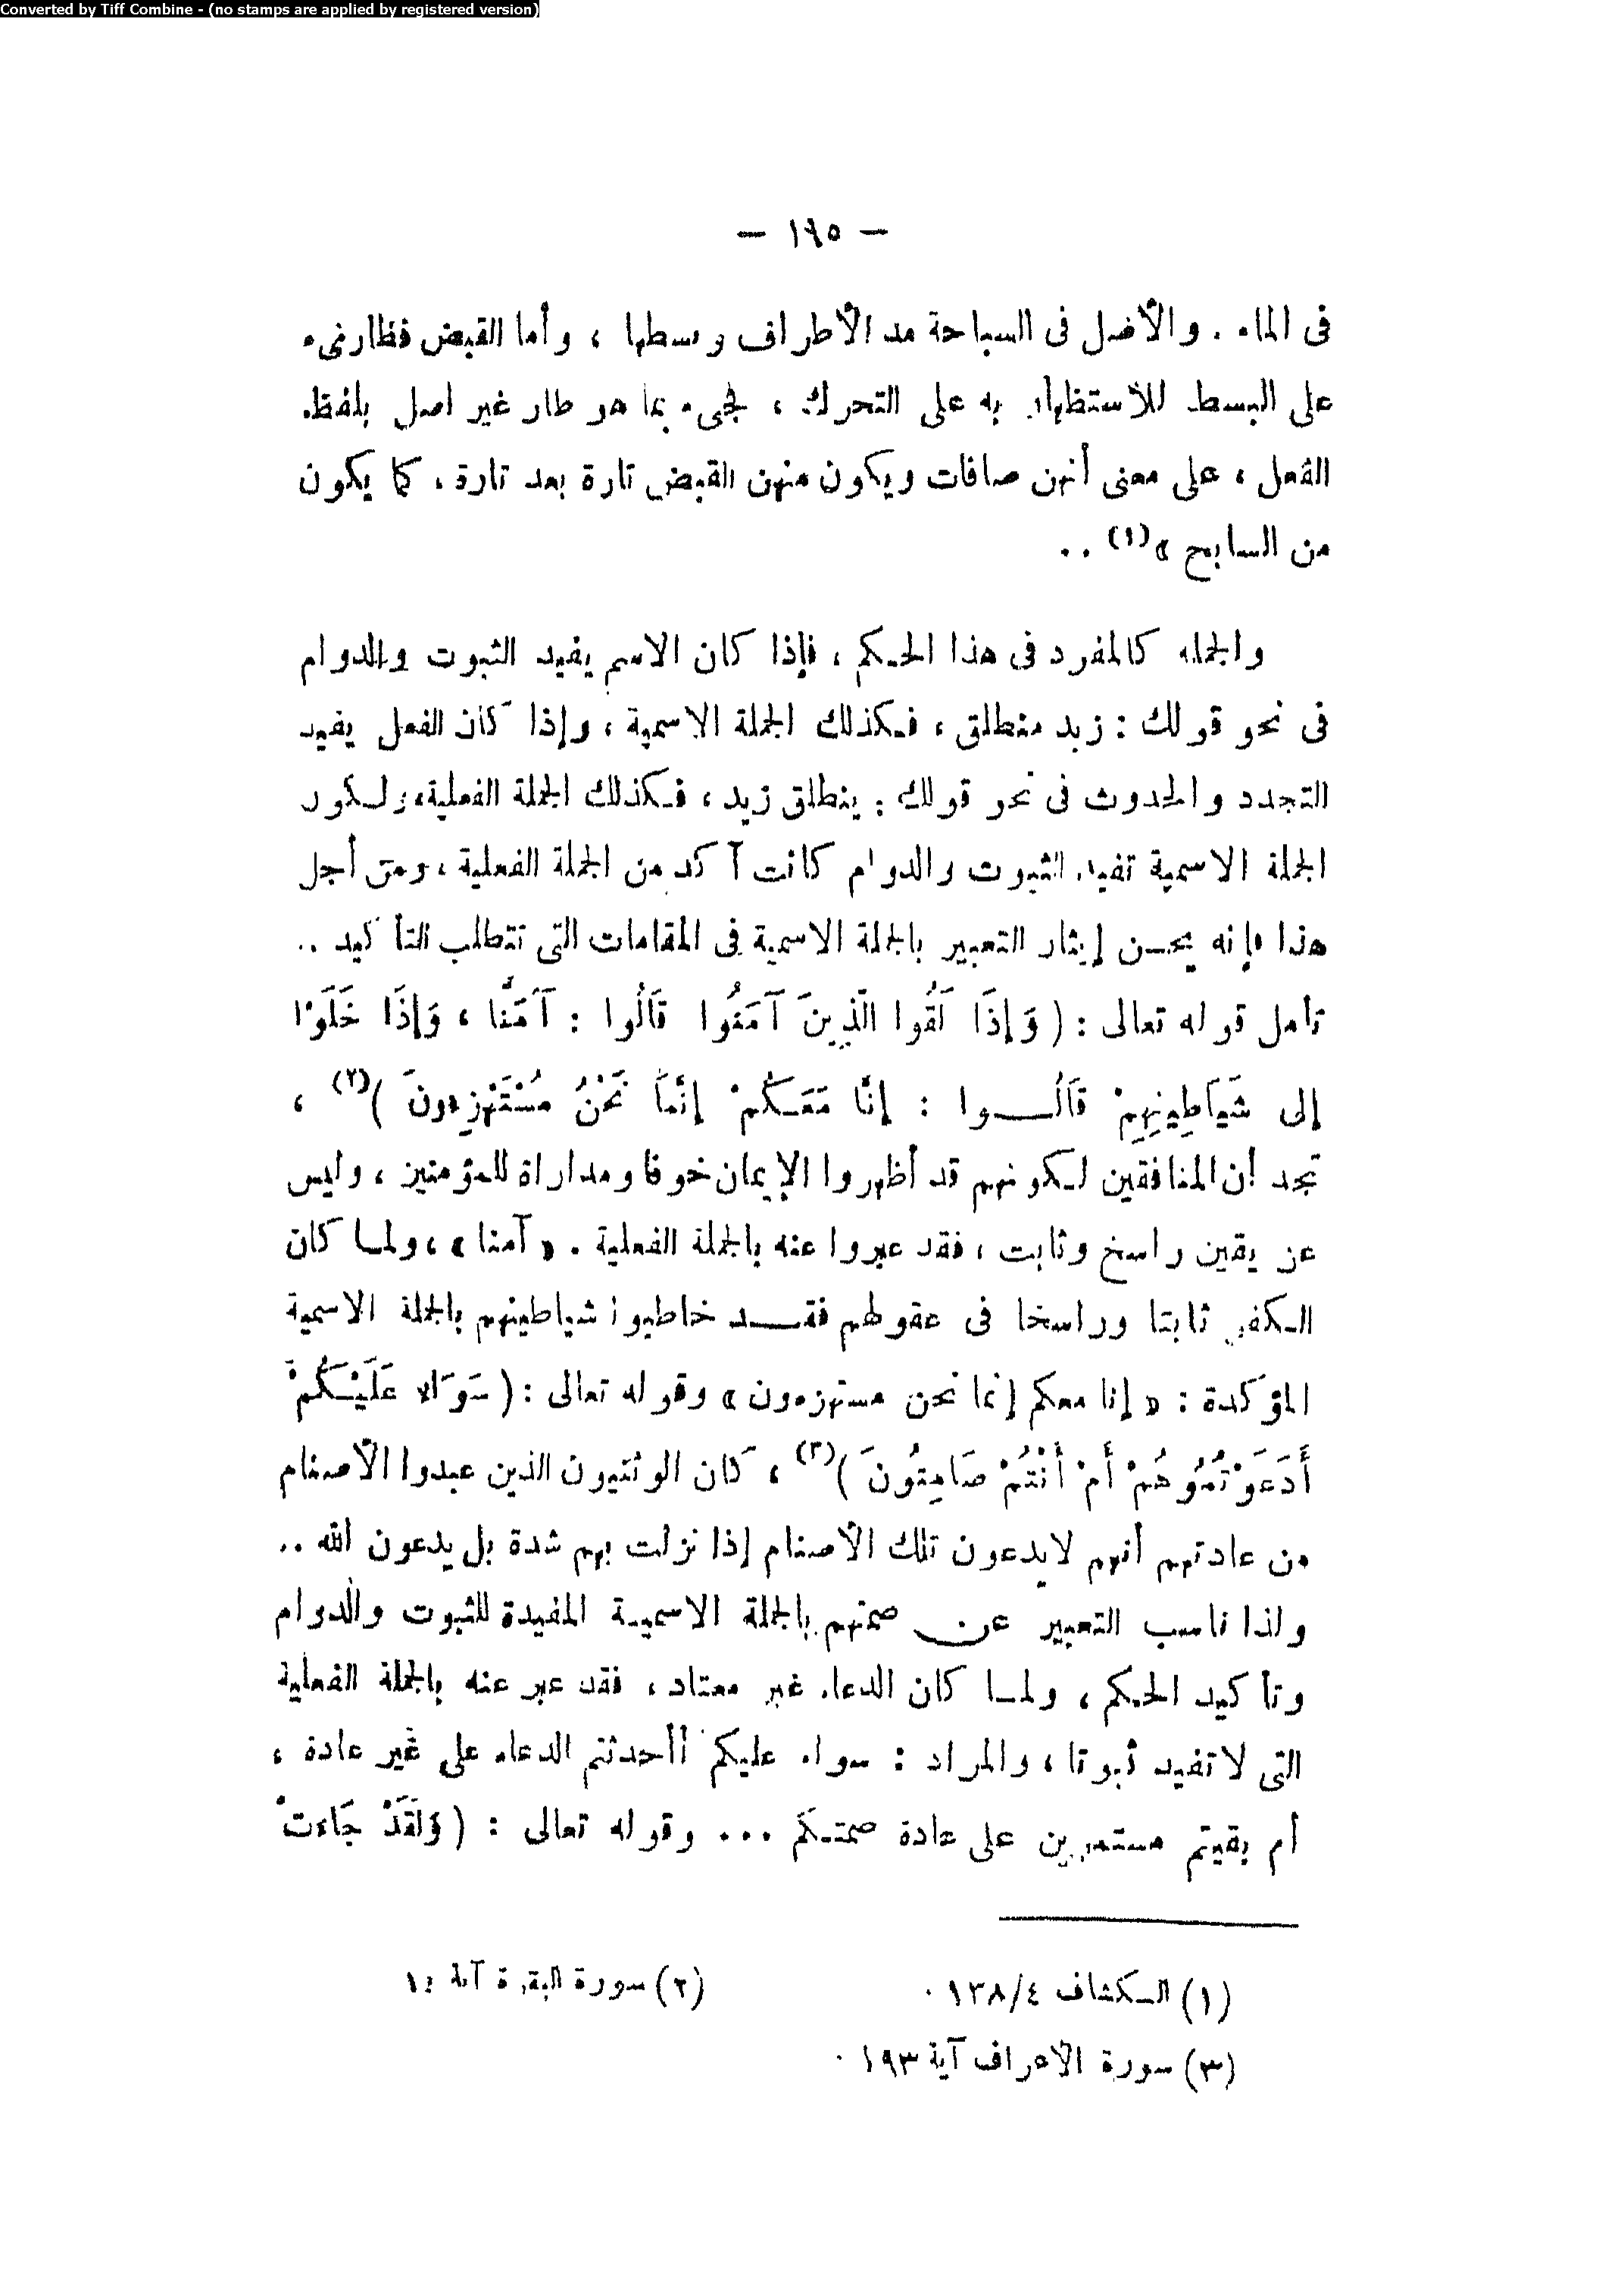 Converted by Tiff Combine - (no stamps are applied by registered version)
— ١٦٥ —
فى الماء . والأصل فى السباحة مد الأطراف وبسطها ، وأما القبض فطارىء
على البسط للاستظهار به على التحرك ، فجىء بما هو طار غير أصل بلفظ
الفعل ، على معنى أنهن صافات ويكون منهن القبض تارة بعد تارة ، كما يكون
من السابح »(١) ..
والجملة كالمفرد فى هذا الحكم ، فإذا كان الاسم يفيد الثبوت والدوام
فى نحو قولك : زيد منطلق ، فكذلك الجملة الاسمية ، وإذا كان الفعل يفيد
التجدد والحدوث فى نحو قولك : ينطلق زيد ، فكذلك الجملة الفعلية، ولكون
الجملة الاسمية تفيد الثبوت والدوام كانت آكد من الجملة الفعلية ، ومن أجل
هذا فإنه يحسن إيثار التعبير بالجملة الاسمية فى المقامات التى تتطلب التأكيد ..
تأمل قوله تعالى : ( وَإِذَا لَقُوا الَّذِينَ آمَنُوا قَالُوا : آمَنَّا ، وَإِذَا خَلَوْا
إلى شَيَاطِينِهِمْ قَالُوا : إنَّا مَعَكُمْ إنَّمَا نَحْنُ مُسْتَهْزِءونَ )(٢) ،
تجد أن المنافقين لكونهم قد أظهروا الإيمان خوفا ومداراة للمؤمنين ، وليس
عن يقين راسخ وثابت ، فقد عبروا عنه بالجملة الفعلية . « آمنا » ، ولما كان
الكفر ثابتا وراسخا فى عقولهم فقد خاطبوا شياطينهم بالجملة الاسمية
المؤكدة : « إنا معكم إنما نحن مستهزءون » وقوله تعالى : ( سَوَاء عَلَيْكُمْ
أَدَعَوْتُمُوهُمْ أَمْ أَنْتُمْ صَامِتُونَ )(٣) ، كان الوثنيون الذين عبدوا الأصنام
من عادتهم أنهم لا يدعون تلك الأصنام إذا نزلت بهم شدة بل يدعون الله ..
ولذا ناسب التعبير عن صمتهم بالجملة الاسمية المفيدة للثبوت والدوام
وتأكيد الحكم ، ولما كان الدعاء غير معتاد ، فقد عبر عنه بالجملة الفعلية
التى لا تفيد ثبوتا ، والمراد : سواء عليكم أأحدثتم الدعاء على غير عادة ،
أم بقيتم مستمرين على عادة صمتكم ... وقوله تعالى : ( وَلَقَدْ جَاءتْ
(١) الكشاف ١٣٨/٤ . (٢) سورة البقرة آية ١٤
(٣) سورة الأعراف آية ١٩٣ .